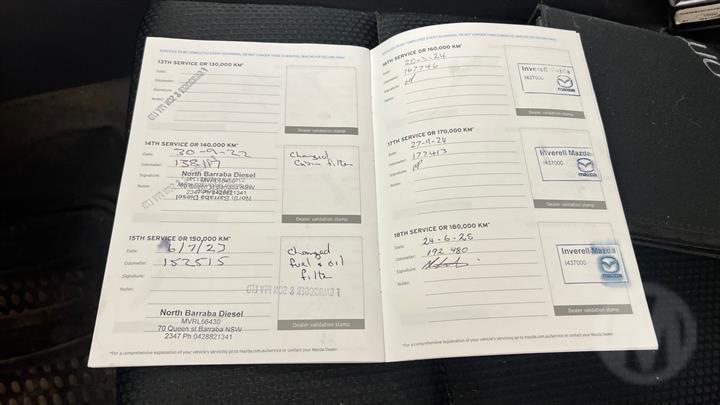 SERVICES TO BE COMPLETED EVERY 10,000KM, OR NOT LONGER THAN 12 MONTHS, WHICHEVER OCCURS FIRST
13TH SERVICE OR 130,000 KM*
Date:
Odometer:
Signature:
Notes:
Dealer validation stamp
14TH SERVICE OR 140,000 KM*
Date: 30-9-22
Odometer:
Signature:
Notes:
North Barraba Diesel
MVRL56430
70 Queen st Barraba NSW
2347 Ph 0428821341
Changed
Cabin filter
Dealer validation stamp
15TH SERVICE OR 150,000 KM*
Date: 6/7/23
Odometer: 152515
Signature:
Notes:
North Barraba Diesel
MVRL56430
70 Queen st Barraba NSW
2347 Ph 0428821341
changed
fuel & oil
filter
Dealer validation stamp
*For a comprehensive explanation of your vehicle's servicing go to mazda.com.au/service or contact your Mazda Dealer.
16TH SERVICE OR 160,000 KM*
Date: 20-3-24
Odometer: 162746
Signature:
Notes:
Inverell Mazda
I437000
mazda
Dealer validation stamp
17TH SERVICE OR 170,000 KM*
Date: 27-9-24
Odometer: 177413
Signature:
Notes:
Inverell Mazda
I437000
mazda
Dealer validation stamp
18TH SERVICE OR 180,000 KM*
Date: 24-6-25
Odometer: 192 480
Signature:
Notes:
Inverell Mazda
I437000
mazda
Dealer validation stamp
*For a comprehensive explanation of your vehicle's servicing go to mazda.com.au/service or contact your Mazda Dealer.